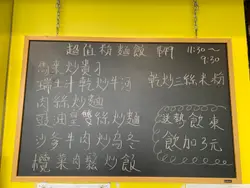 超值粉麵飯 $49 11:30～9:30
馬來炒貴刁
瑞士汁乾炒牛河
肉絲炒麵
豉油皇雙絲炒麵
沙爹牛肉炒烏冬
欖菜肉鬆炒飯
乾炒三絲米粉
凍飲
飲加3元